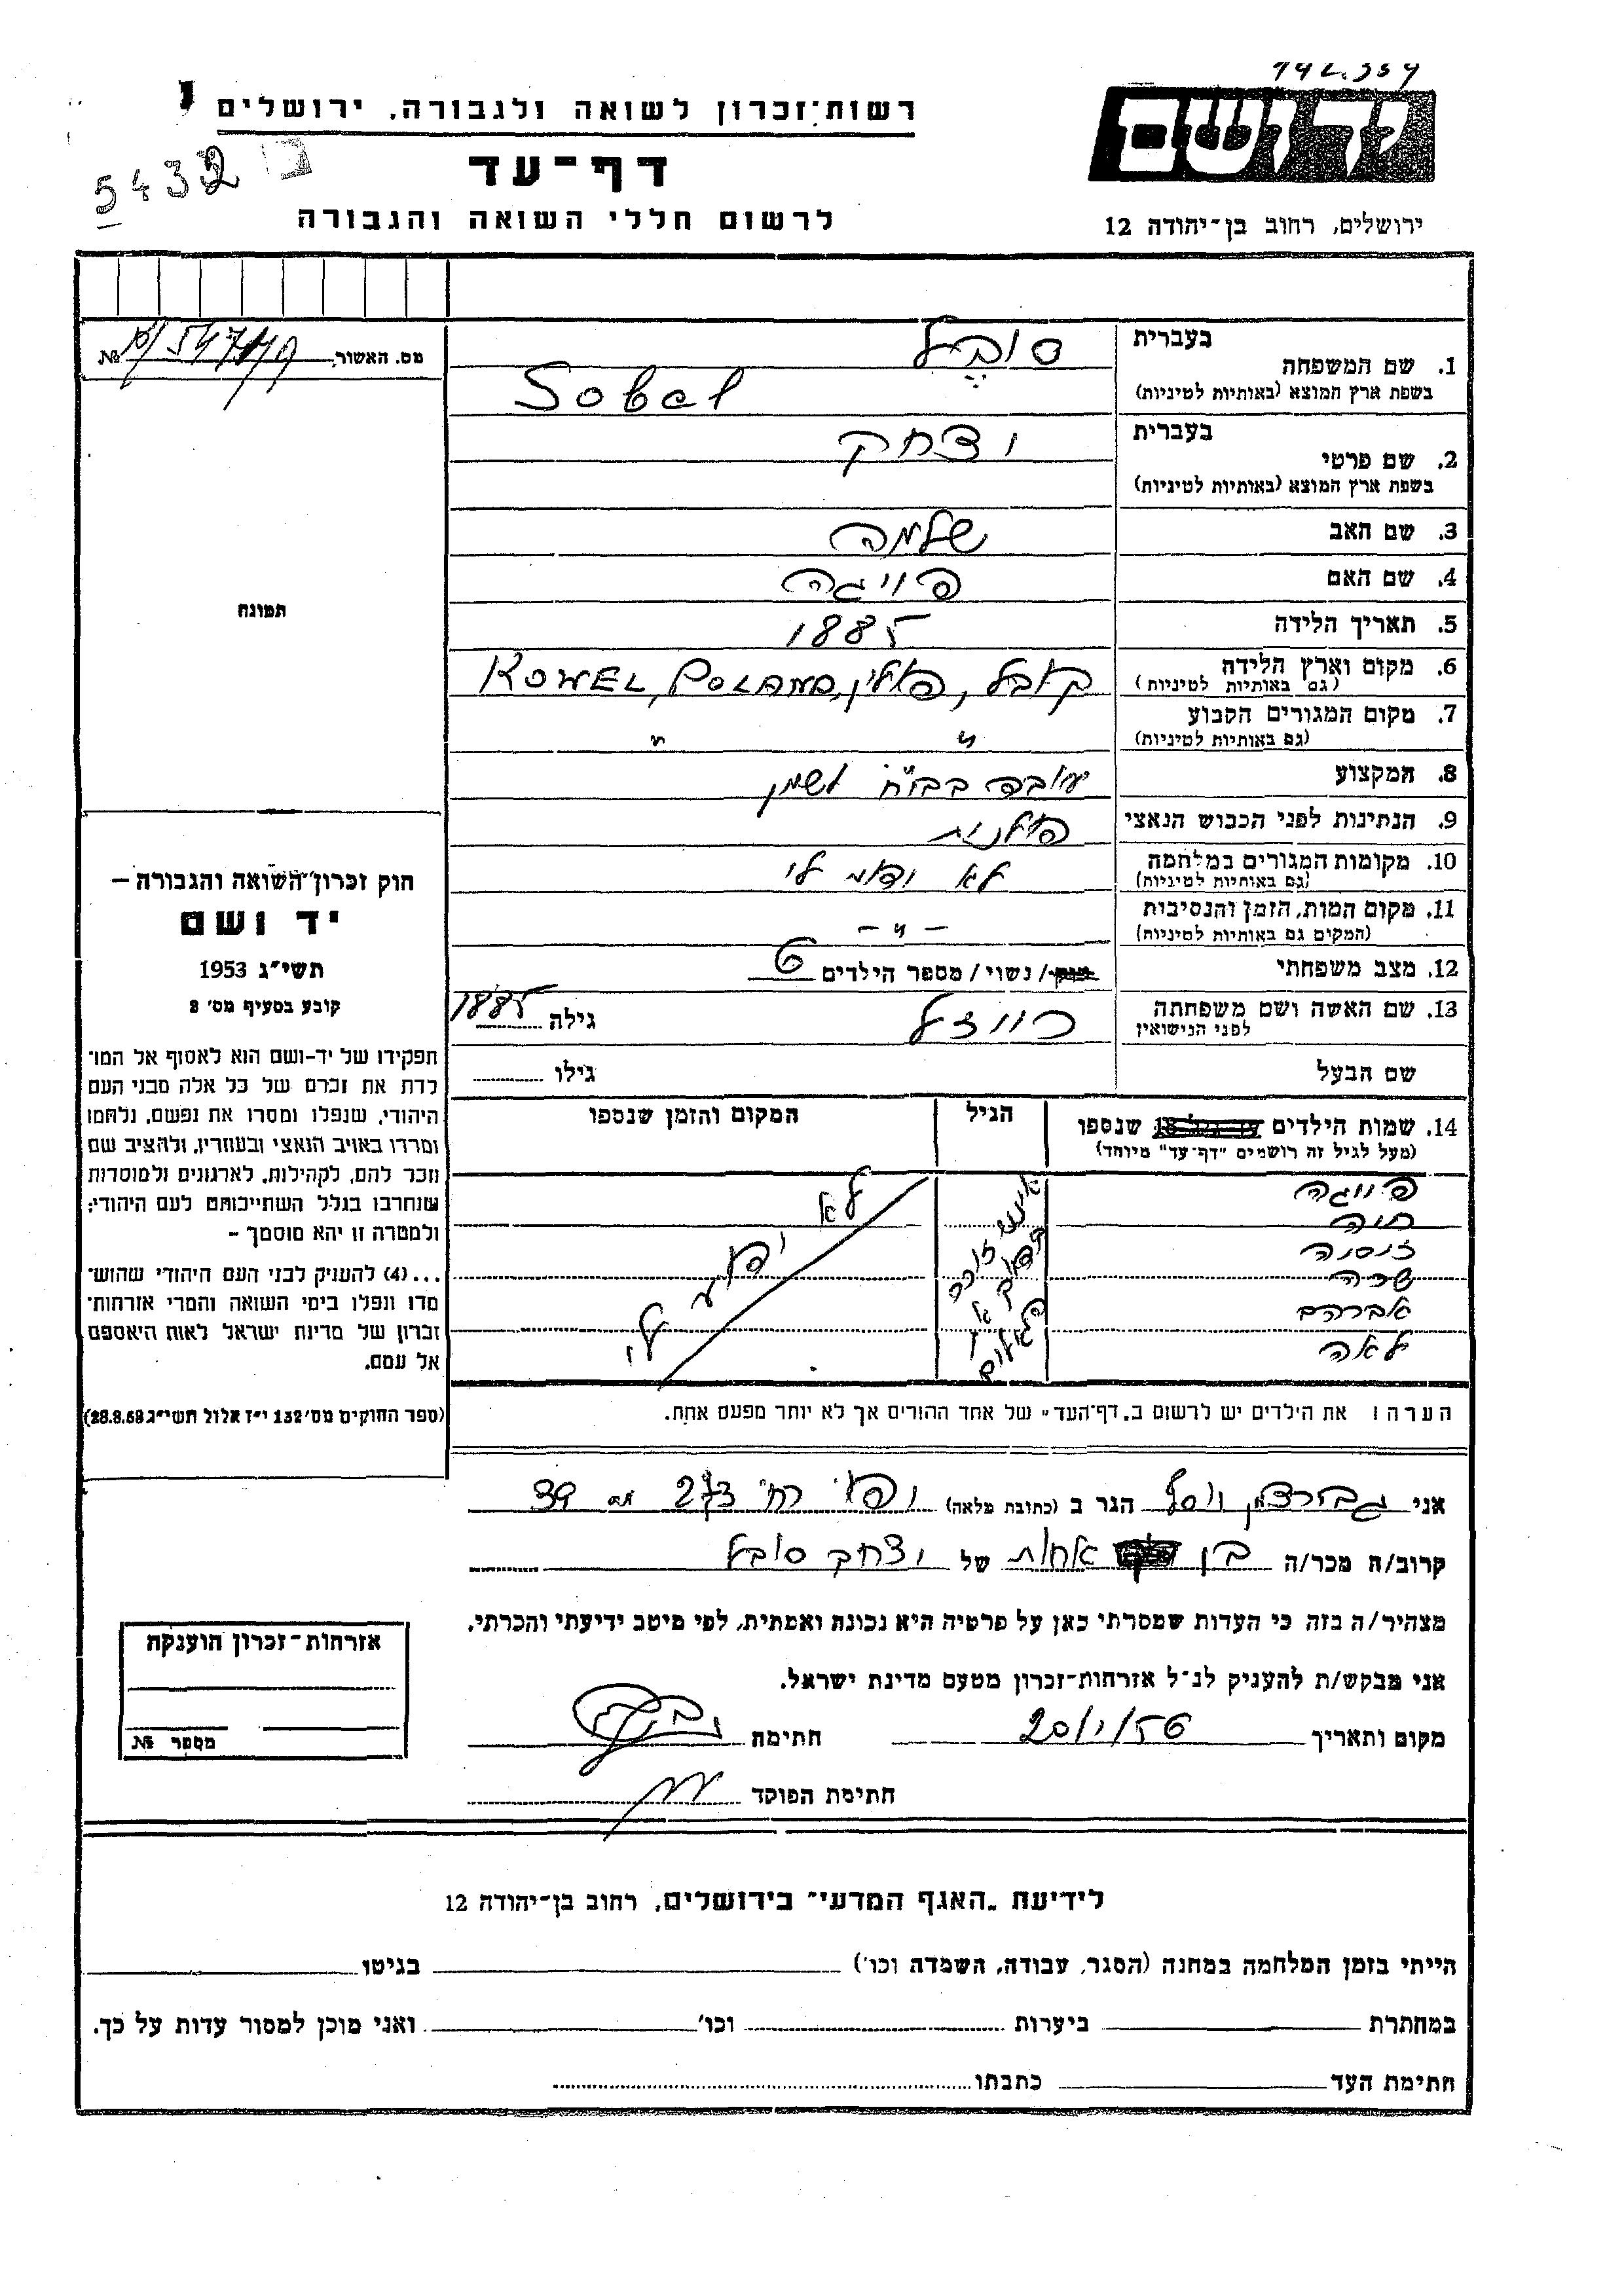 יד ושם
ירושלים, רחוב בן-יהודה 12
רשות-זכרון לשואה ולגבורה, ירושלים
דף-עד
לרשום חללי השואה והגבורה
5432
מס. האשור №
1. שם המשפחה בעברית סובל
בשפת ארץ המוצא (באותיות לטיניות) Sobel
2. שם פרטי בעברית יצחק
בשפת ארץ המוצא (באותיות לטיניות)
3. שם האב שלמה
4. שם האם פייגה
5. תאריך הלידה 1885
6. מקום וארץ הלידה קובל, פולין, KOWEL, POLAND
(גם באותיות לטיניות)
7. מקום המגורים הקבוע " "
(גם באותיות לטיניות)
8. המקצוע עובד בביח לשמן
9. הנתינות לפני הכבוש הנאצי פולנית
10. מקומות המגורים במלחמה לא ידוע לי
(גם באותיות לטיניות)
11. מקום המות, הזמן והנסיבות - " -
(המקום גם באותיות לטיניות)
12. מצב משפחתי / נשוי / מספר הילדים 6
13. שם האשה ושם משפחתה רייזל גילה 1885
לפני הנישואין
שם הבעל גילו
14. שמות הילדים עד גיל 18 שנספו הגיל המקום והזמן שנספו
(מעל לגיל זה רושמים "דף-עד" מיוחד)
פייגה
חיה
זיסלה
שרה
אברהם
לאה
אינני זוכר
לא ידוע לי
הערה: את הילדים יש לרשום ב"דף-העד" של אחד ההורים אך לא יותר מפעם אחת.
תמונה
חוק זכרון השואה והגבורה –
יד ושם
תשי"ג 1953
קובע בסעיף מס' 2
תפקידו של יד-ושם הוא לאסוף אל המו־
לדת את זכרם של כל אלה מבני העם
היהודי, שנפלו ומסרו את נפשם, נלחמו
ומרדו באויב הנאצי ובעוזריו, ולהציב שם
וזכר להם, לקהילות, לארגונים ולמוסדות
שנחרבו בגלל השתייכותם לעם היהודי;
ולמטרה זו יהא מוסמך –
... (4) להעניק לבני העם היהודי שהוש־
מדו ונפלו בימי השואה והמרי אזרחות־
זכרון של מדינת ישראל לאות היאספם
אל עמם.
(ספר החוקים מס' 132 י"ז אלול תשי"ג 28.8.53)
אני יוסף הגר ב (כתובת מלאה) רח' 273 39
קרוב/ה מכר/ה בן אחות של יצחק סובל
מצהיר/ה בזה כי העדות שמסרתי כאן על פרטיה היא נכונה ואמתית, לפי מיטב ידיעתי והכרתי.
אני מבקש/ת להעניק לנ"ל אזרחות-זכרון מטעם מדינת ישראל.
מקום ותאריך 20/1/56 חתימה
חתימת הפוקד
אזרחות-זכרון הוענקה
מספר №
לידיעת "האגף המדעי" בירושלים, רחוב בן-יהודה 12
הייתי בזמן המלחמה במחנה (הסגר, עבודה, השמדה וכו') בגיטו
במחתרת ביערות וכו' ואני מוכן למסור עדות על כך.
חתימת העד כתבתו